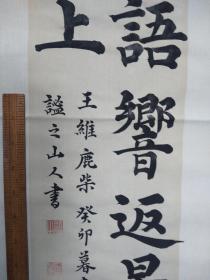 語響返景
上
王維鹿柴 癸卯暮
謐之山人書